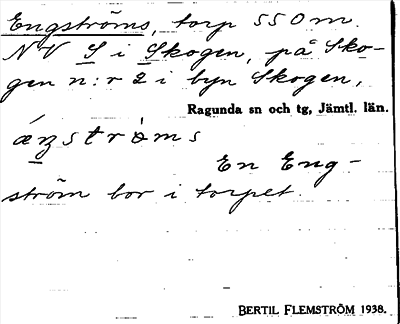 Engströms, torp 550 m.
NV S i Skogen, på Sko-
gen n:r 2 i byn Skogen,
Ragunda sn och tg, Jämtl. län.
áŋströ̀ms
En Eng-
ström bor i torpet.
BERTIL FLEMSTRÖM 1938.